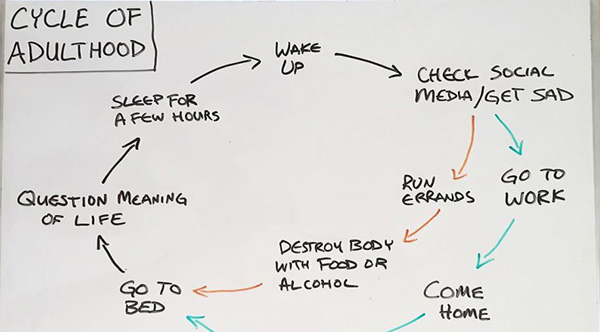 CYCLE OF
ADULTHOOD
WAKE
UP
CHECK SOCIAL
MEDIA/GET SAD
GO TO
WORK
RUN
ERRANDS
COME
HOME
DESTROY BODY
WITH FOOD OR
ALCOHOL
GO TO
BED
QUESTION MEANING
OF LIFE
SLEEP FOR
A FEW HOURS